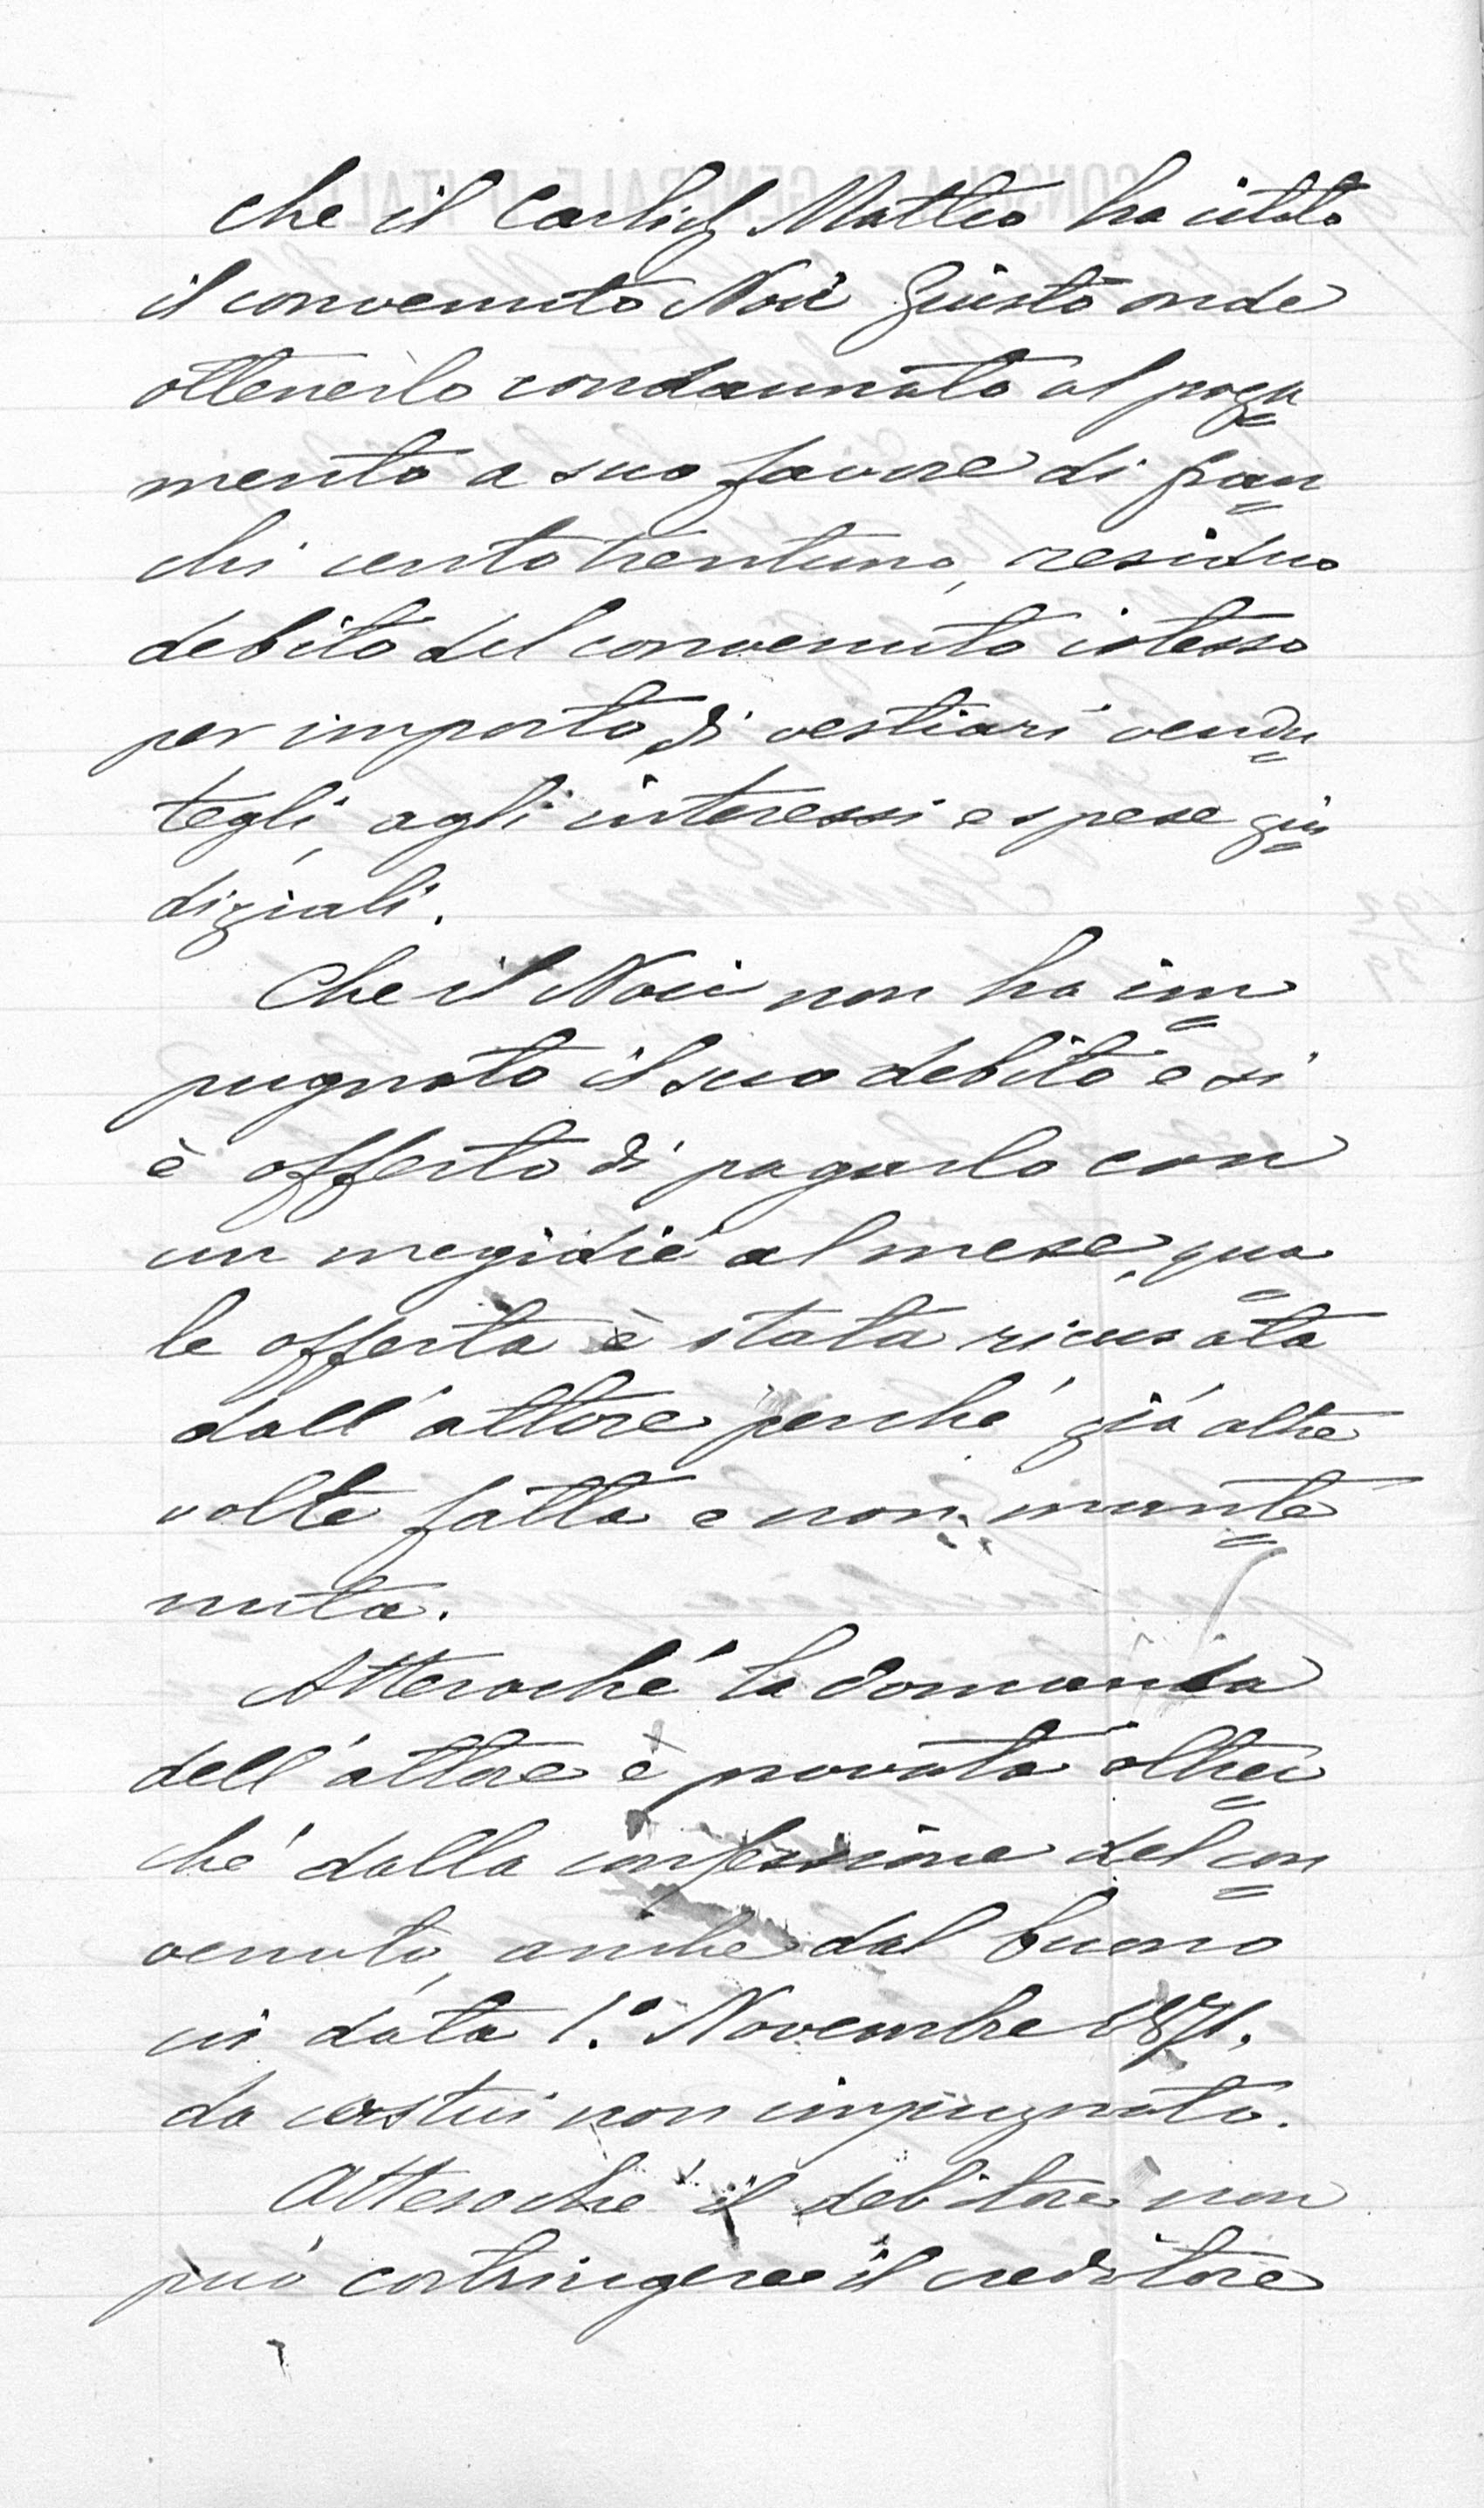 che il Carlich Matteo ha citato
il convenuto Noci Giusto onde
ottenerlo condannato al paga=
mento a suo favore di fran=
chi cento trentuno, residuo
debito del convenuto istesso
per importo di vestiari vendu=
tegli, agli interessi e spese giu=
diziali.
Che il Noci non ha im=
pugnato il suo debito e si
è offerto di pagarlo con
un megidié al mese, qua=
le offerta è stata ricusata
dall'attore perché già altre
volte fatta e non mante=
nuta.
Attesoché la domanda
dell'attore è provata oltrec=
ché dalla confessione del con=
venuto, anche dal buono
in data 1.° Novembre 1871,
da costui non impugnato.
Attesoché il debitore non
può costringere il creditore